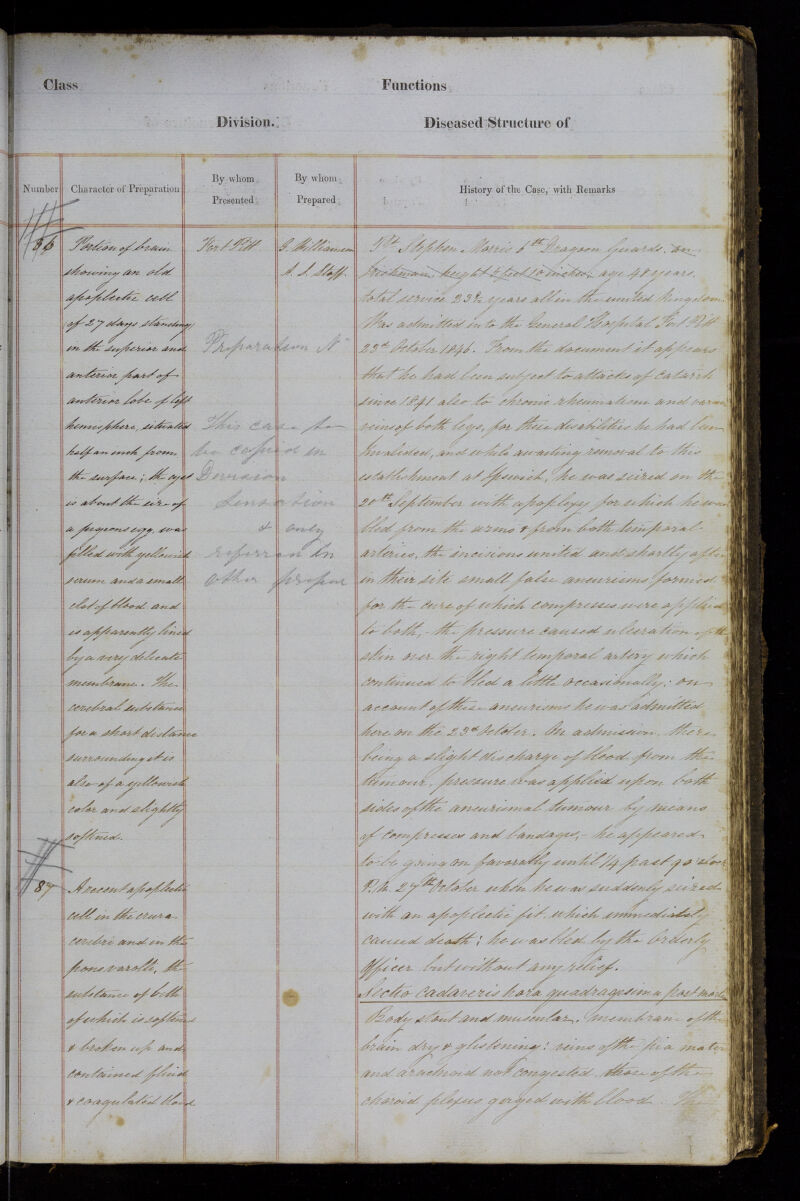 Class
Functions
Division.
Diseased Structure of
Number
Character of Preparation
By whom
Presented
By whom
Prepared
History of the Case, with Remarks
86
Portion of brain
showing an old
apoplectic cell
of 27 days standing
in the superior and
anterior part of
anterior lobe of left
hemisphere, situated
half an inch from
the surface; the cyst
is about the size of
a pigeons egg, was
filled with yellowish
serum and a small
clot of blood and
is apparently lined
by a very delicate
membrane. The
cerebral substance
for a short distance
surrounding it is
also of a yellowish
color and slightly
softened.
87
A recent apoplectic
cell in the crura
cerebri and in the
pons varolii, the
substance of both
of which is softened
& broken up and
contained fluid
& coagulated blood
Fort Pitt
G. Williamson
A. S. Staff
Preparation N
This case to
be copied in
Division
Sensation
& only
referred in
other prepar
Pt Stephen Morris 6th Dragoon Guards, an
Irishman, height 5 feet 10 inches, age 48 years
total service 23 years all in the united kingdom.
Was admitted into the General Hospital Fort Pitt
23d October 1846. From the document it appears
that he had been subject to attacks of catarrh
since 1841 also to chronic rheumatism and
veins of both legs, for these disabilities he had been
Invalided, and while awaiting removal to this
establishment at Ipswich, he was seized on the
20th September with apoplexy for which he was
bled from the arms & from both temporal
arteries, the incisions united and shortly after
in their site small false aneurisms formed
for the cure of which compresses were applied
to both,- the pressure caused ulceration of the
skin over the right temporal artery which
continued to bled a little occasionally: on
account of these aneurisms he was admitted
here on the 23d October. On admission there
being a slight discharge of blood from the
tumour, pressure was applied upon both
sides of the aneurismal tumour by means
of compresses and bandages,- he appeared
to be going on favorably until 1/4 past 9 o'clock
P.M. 27th October when he was suddenly seized
with an apoplectic fit which immediately
caused death; he was bled by the Orderly
Officer but without any relief.
Sectio cadaveris hora quadragesima post mort
Body stout and muscular. membrane of the
brain dry & glistening: veins of the pia mater
and arachnoid not congested, those of the
choroid plexus gorged with blood. The